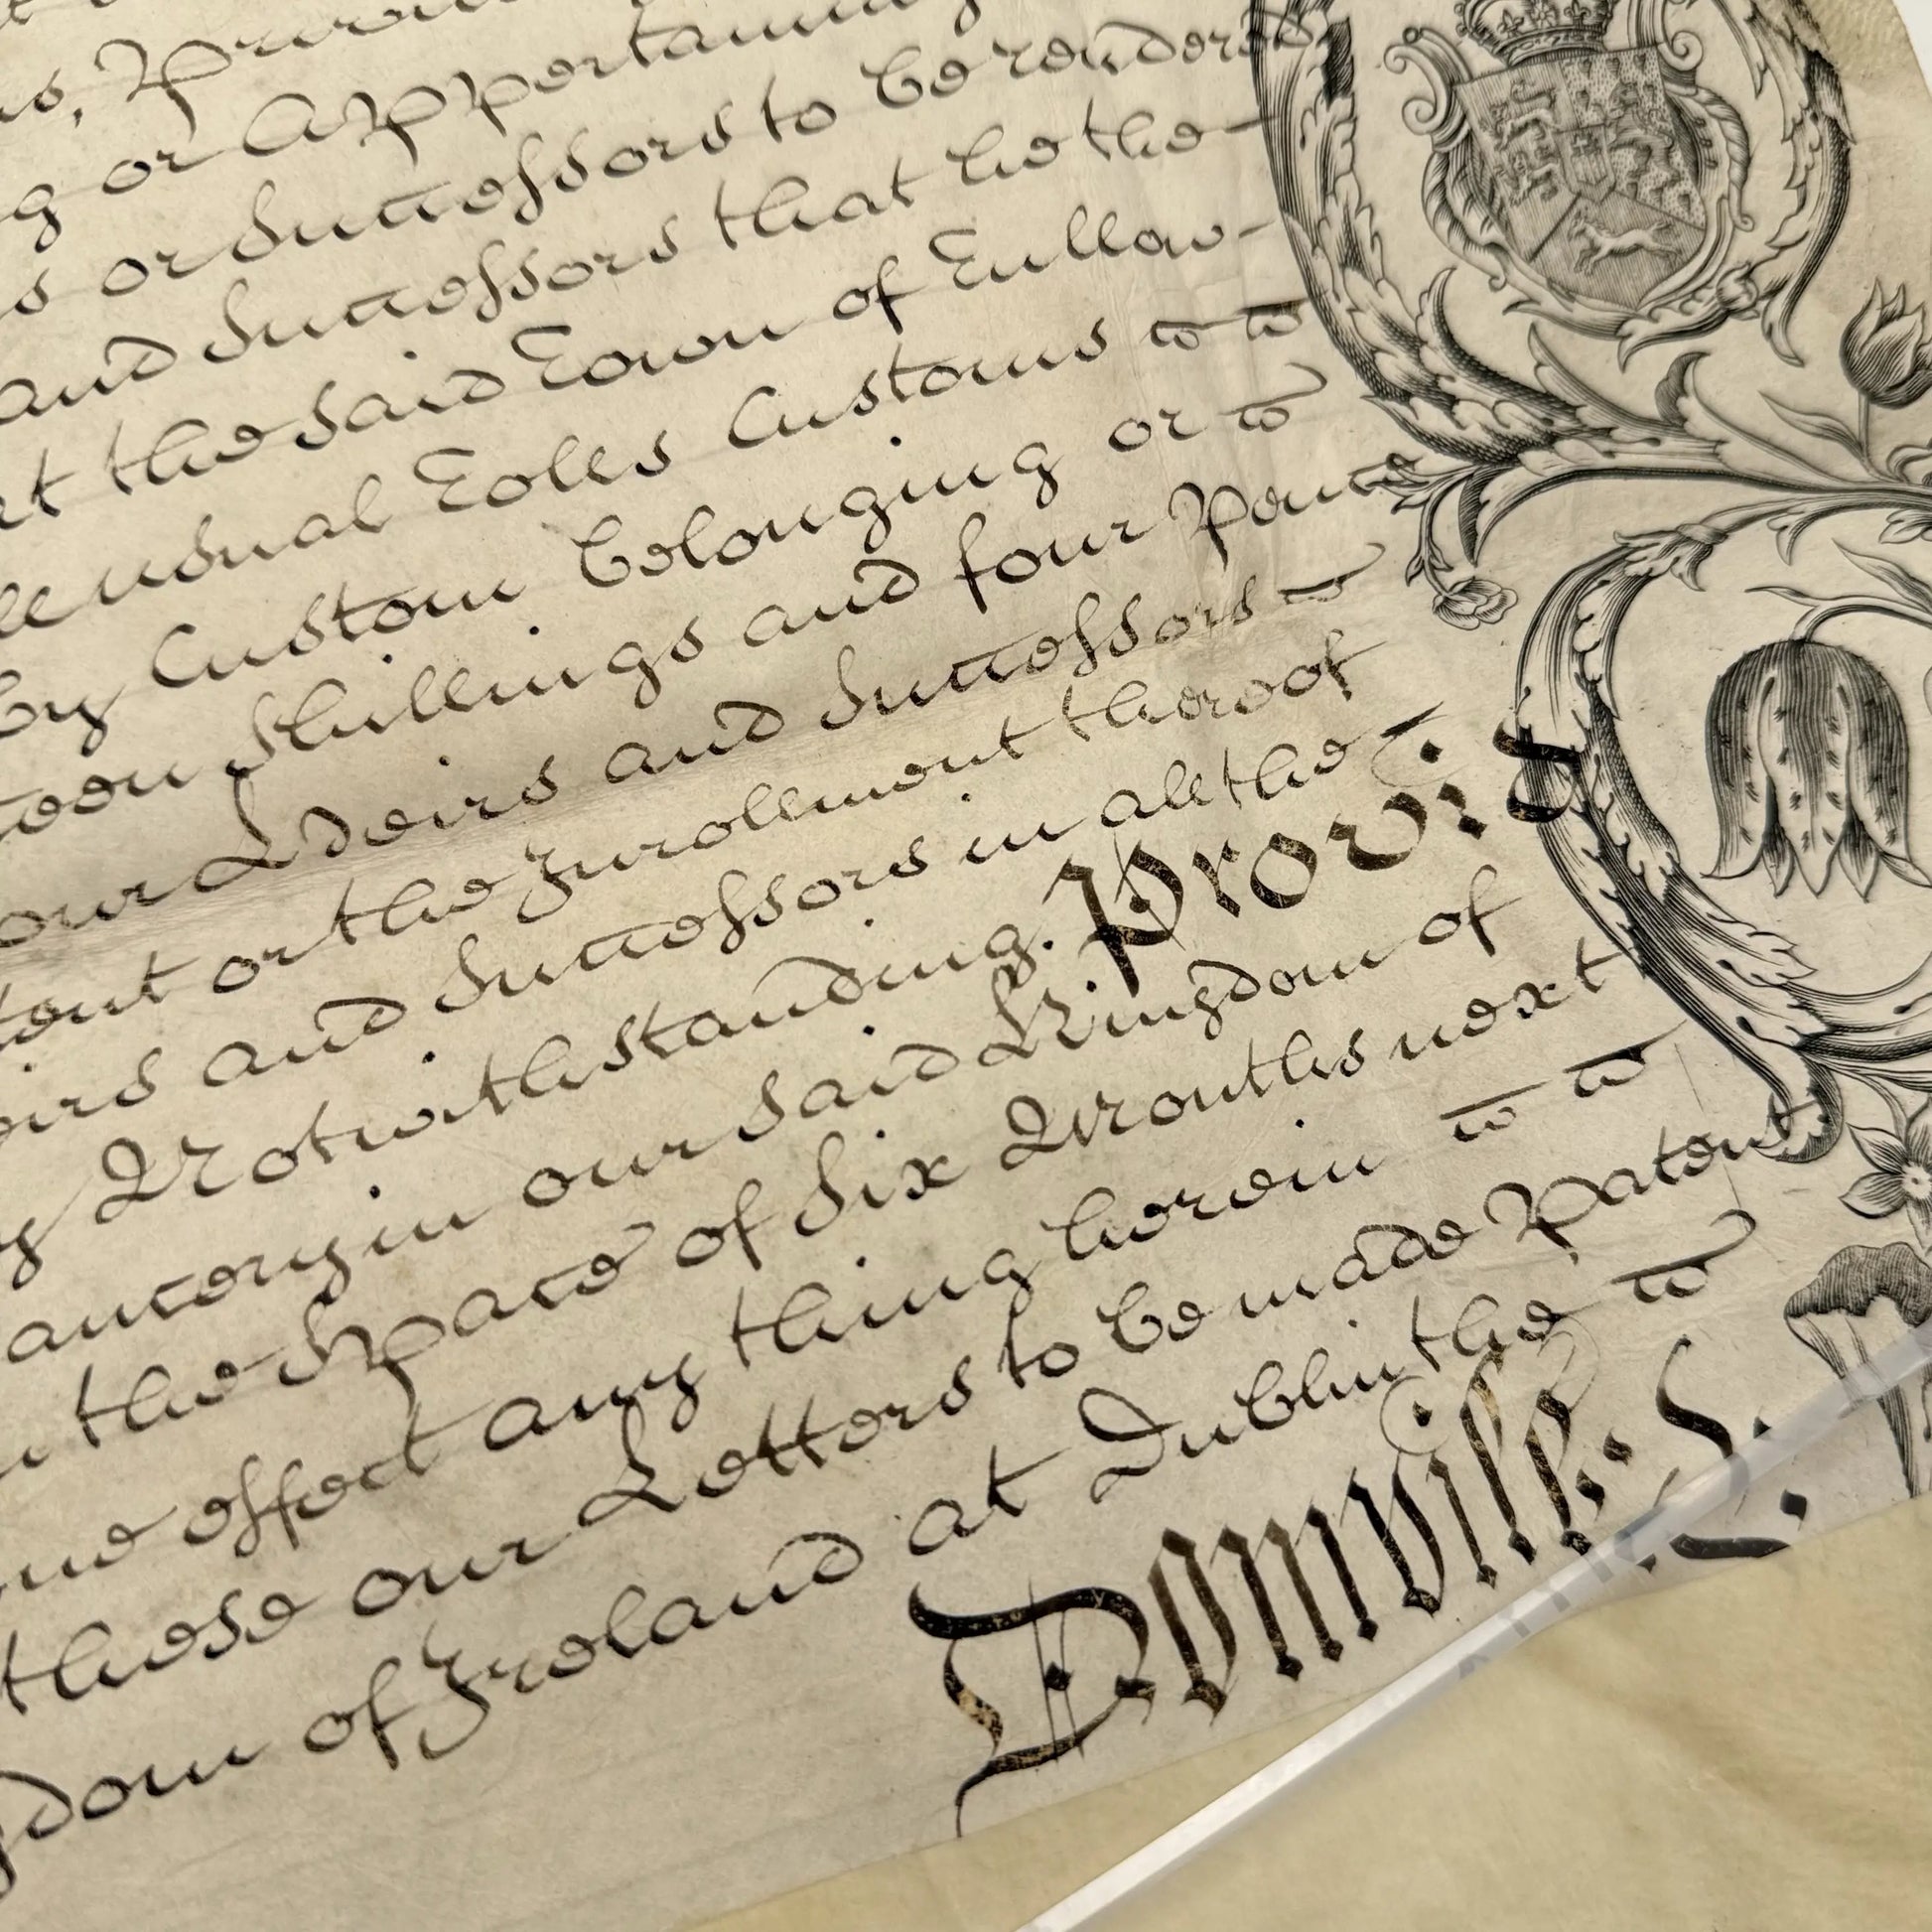 or Appertaining
or Successors to be rendered
and Successors that he the
the said Town of Tullow
usual Toles Customs
by Custom belonging or
Shillings and four Pence
our Heirs and Successors
or the Inrollment thereof
and Successors in all the
Notwithstanding. Provis
in our said Kingdom of
the Space of Six Months next
effect any thing herein
these our Letters to be made Patent
of Ireland at Dublin the
Domvile: